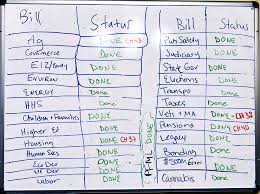 Bill Status
Ag DONE CH43
Commerce DONE
E12/ DONE
Environ DONE
Energy DONE
HHS DONE
Children + Families DONE
Higher Ed DONE
Housing DONE CH37
Human Svcs DONE
Eco Dev DONE
Labor DONE
DONE
Bill Status
Pub Safety DONE
Judiciary DONE
State Gov DONE
Elections DONE
Transpo DONE
Taxes DONE
Vets + MA DONE CH38
Pensions DONE CH40
Legacy DONE
Bonding DONE
DONE
Cannabis DONE